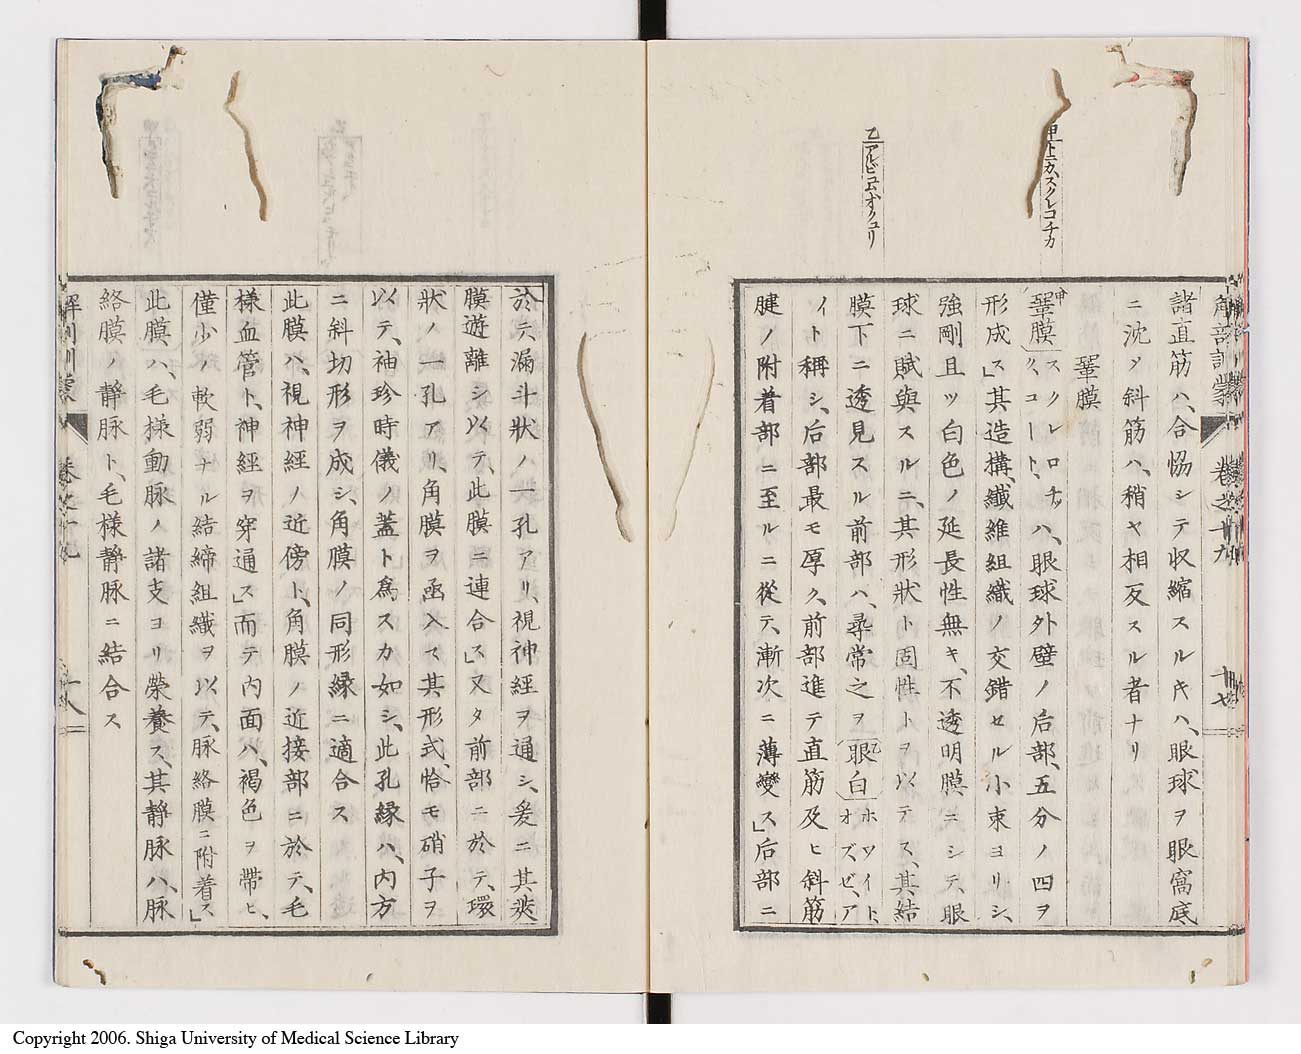 甲トニカ、スクレロチカ
乙アルビュム、オクュリ
解剖訓蒙 巻之十九 十七
諸直筋ハ、合恊シテ収縮スルキハ、眼球ヲ眼窩底
ニ沈メ斜筋ハ、稍ヤ相反スル者ナリ
鞏膜
鞏膜スクレロチック、コートハ、眼球外壁ノ后部、五分ノ四ヲ
形成ス」其造構、纎維組織ノ交錯セル小束ヨリシ、
強剛且ツ白色ノ延長性無キ、不透明膜ニシテ、眼
球ニ賦與スルニ、其形狀ト固性トヲ以テス、其結
膜下ニ透見スル前部ハ、尋常之ヲ眼白ホワイト、オズ、ゼ、ア
イト稱シ、后部最モ厚ク、前部進テ直筋及ヒ斜筋
腱ノ附着部ニ至ルニ從テ、漸次ニ薄變ス」后部ニ
於テ漏斗狀ノ一孔アリ、視神経ヲ通シ、爰ニ其莢
膜遊離シ以テ、此膜ニ連合ス」又タ前部ニ於テ、環
狀ノ一孔アリ、角膜ヲ函入ス其形式、恰モ硝子ヲ
以テ、袖珍時儀ノ蓋ト爲スカ如シ、此孔縁ハ、内方
ニ斜切形ヲ成シ、角膜ノ同形縁ニ適合ス
此膜ハ、視神経ノ近傍ト、角膜ノ近接部ニ於テ、毛
様血管ト、神經ヲ穿通ス」而テ内面ハ、褐色ヲ帶ヒ、
僅少ノ軟弱ナル結締組織ヲ以テ、脉絡膜ニ附着ス」
此膜ハ、毛様動脉ノ諸支ヨリ榮養ス、其靜脉ハ、脉
絡膜ノ靜脉ト、毛様靜脉ニ結合ス
解剖訓蒙 巻之十九 十八
Copyright 2006. Shiga University of Medical Science Library